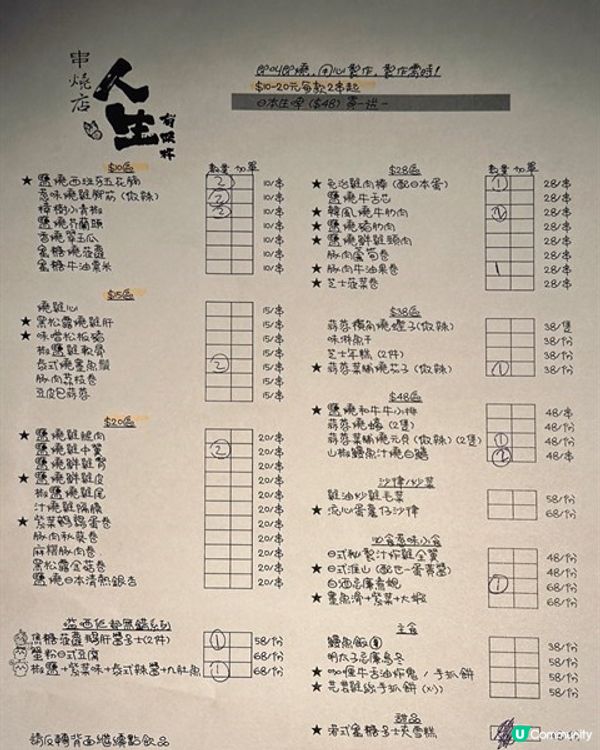 串燒店
人生
有限杯
即叫即燒，用心製作，製作需時！
$10-20元每款2串起
日本生啤 ($48) 買一送一
$10區
數量 加單
★ 鹽燒西班牙五花腩 ② 10/串
惹味燒雞腎 (微辣) ② 10/串
樟樹小青椒 ② 10/串
鹽燒芥蘭頭 10/串
香燒翠玉瓜 10/串
蜜糖燒菠蘿 10/串
蜜糖牛油粟米 10/串
$15區
燒雞心 15/串
★ 黑松露燒雞肝 15/串
★ 味噌松板豬 15/串
椒鹽雞軟骨 15/串
泰式燒墨魚鬚 ② 15/串
豚肉荔枝卷 15/串
豆皮包蒜蓉 15/串
$20區
★ 鹽燒雞腿肉 20/串
鹽燒雞中翼 ② 20/串
鹽燒鮮雞腎 20/串
★ 鹽燒鮮雞皮 20/串
椒鹽燒雞尾 20/串
汁燒雞腸 20/串
★ 紫菜鵪鶉蛋卷 20/串
豚肉秋葵卷 20/串
麻糬豚肉卷 20/串
黑松露金菇卷 20/串
鹽燒日本清熱銀杏 20/串
焦糖菠蘿鵝肝醬多士(2件) ① 58/1份
蟹粉日式豆腐 68/1份
椒鹽+紫菜味+泰式辣醬+九肚魚 ① 68/1份
請反轉背面繼續點飲品
$28區
數量 加單
★ 免治雞肉棒 (配日本蛋) ① 28/串
鹽燒牛舌芯 28/串
★ 韓風燒牛肋肉 ② 28/串
★ 鹽燒豬肋肉 28/串
★ 鹽燒鮮雞頸肉 28/串
豚肉蘆筍卷 28/串
★ 豚肉牛油果卷 1 28/串
★ 芝士菠菜卷 28/串
$38區
蒜蓉橫角燒蟶子 (微辣) 38/隻
味淋魚干 38/1份
芝士年糕 (2件) 38/1份
★ 蒜蓉菜脯燒茄子 (微辣) ① 38/1份
$48區
★ 鹽燒和牛牛小排 48/串
蒜蓉燒蠔 (2隻) 48/1份
蒜蓉菜脯燒元貝 (微辣) (2隻) ① 48/1份
山椒鰻魚汁燒白鱔 ② 48/串
沙律/炒菜
雞油炒雞毛菜 58/1份
★ 流心蛋薯仔沙律 58/1份
日式秘製汁炸雞全翼 48/1份
★ 日式淮山 (配世一蛋黃醬) 68/1份
白酒忌廉煮蜆 ① 68/1份
★ 墨魚滑+紫菜+大蝦 68/1份
主食
鰻魚飯 38/1份
明太子忌廉烏冬 58/1份
★ 咖喱牛舌油炸鬼 / 手抓餅 58/1份
★ 芫荽雞絲手抓餅 58/1份
甜品
★ 港式蜜糖多士夾雪糕
U Community